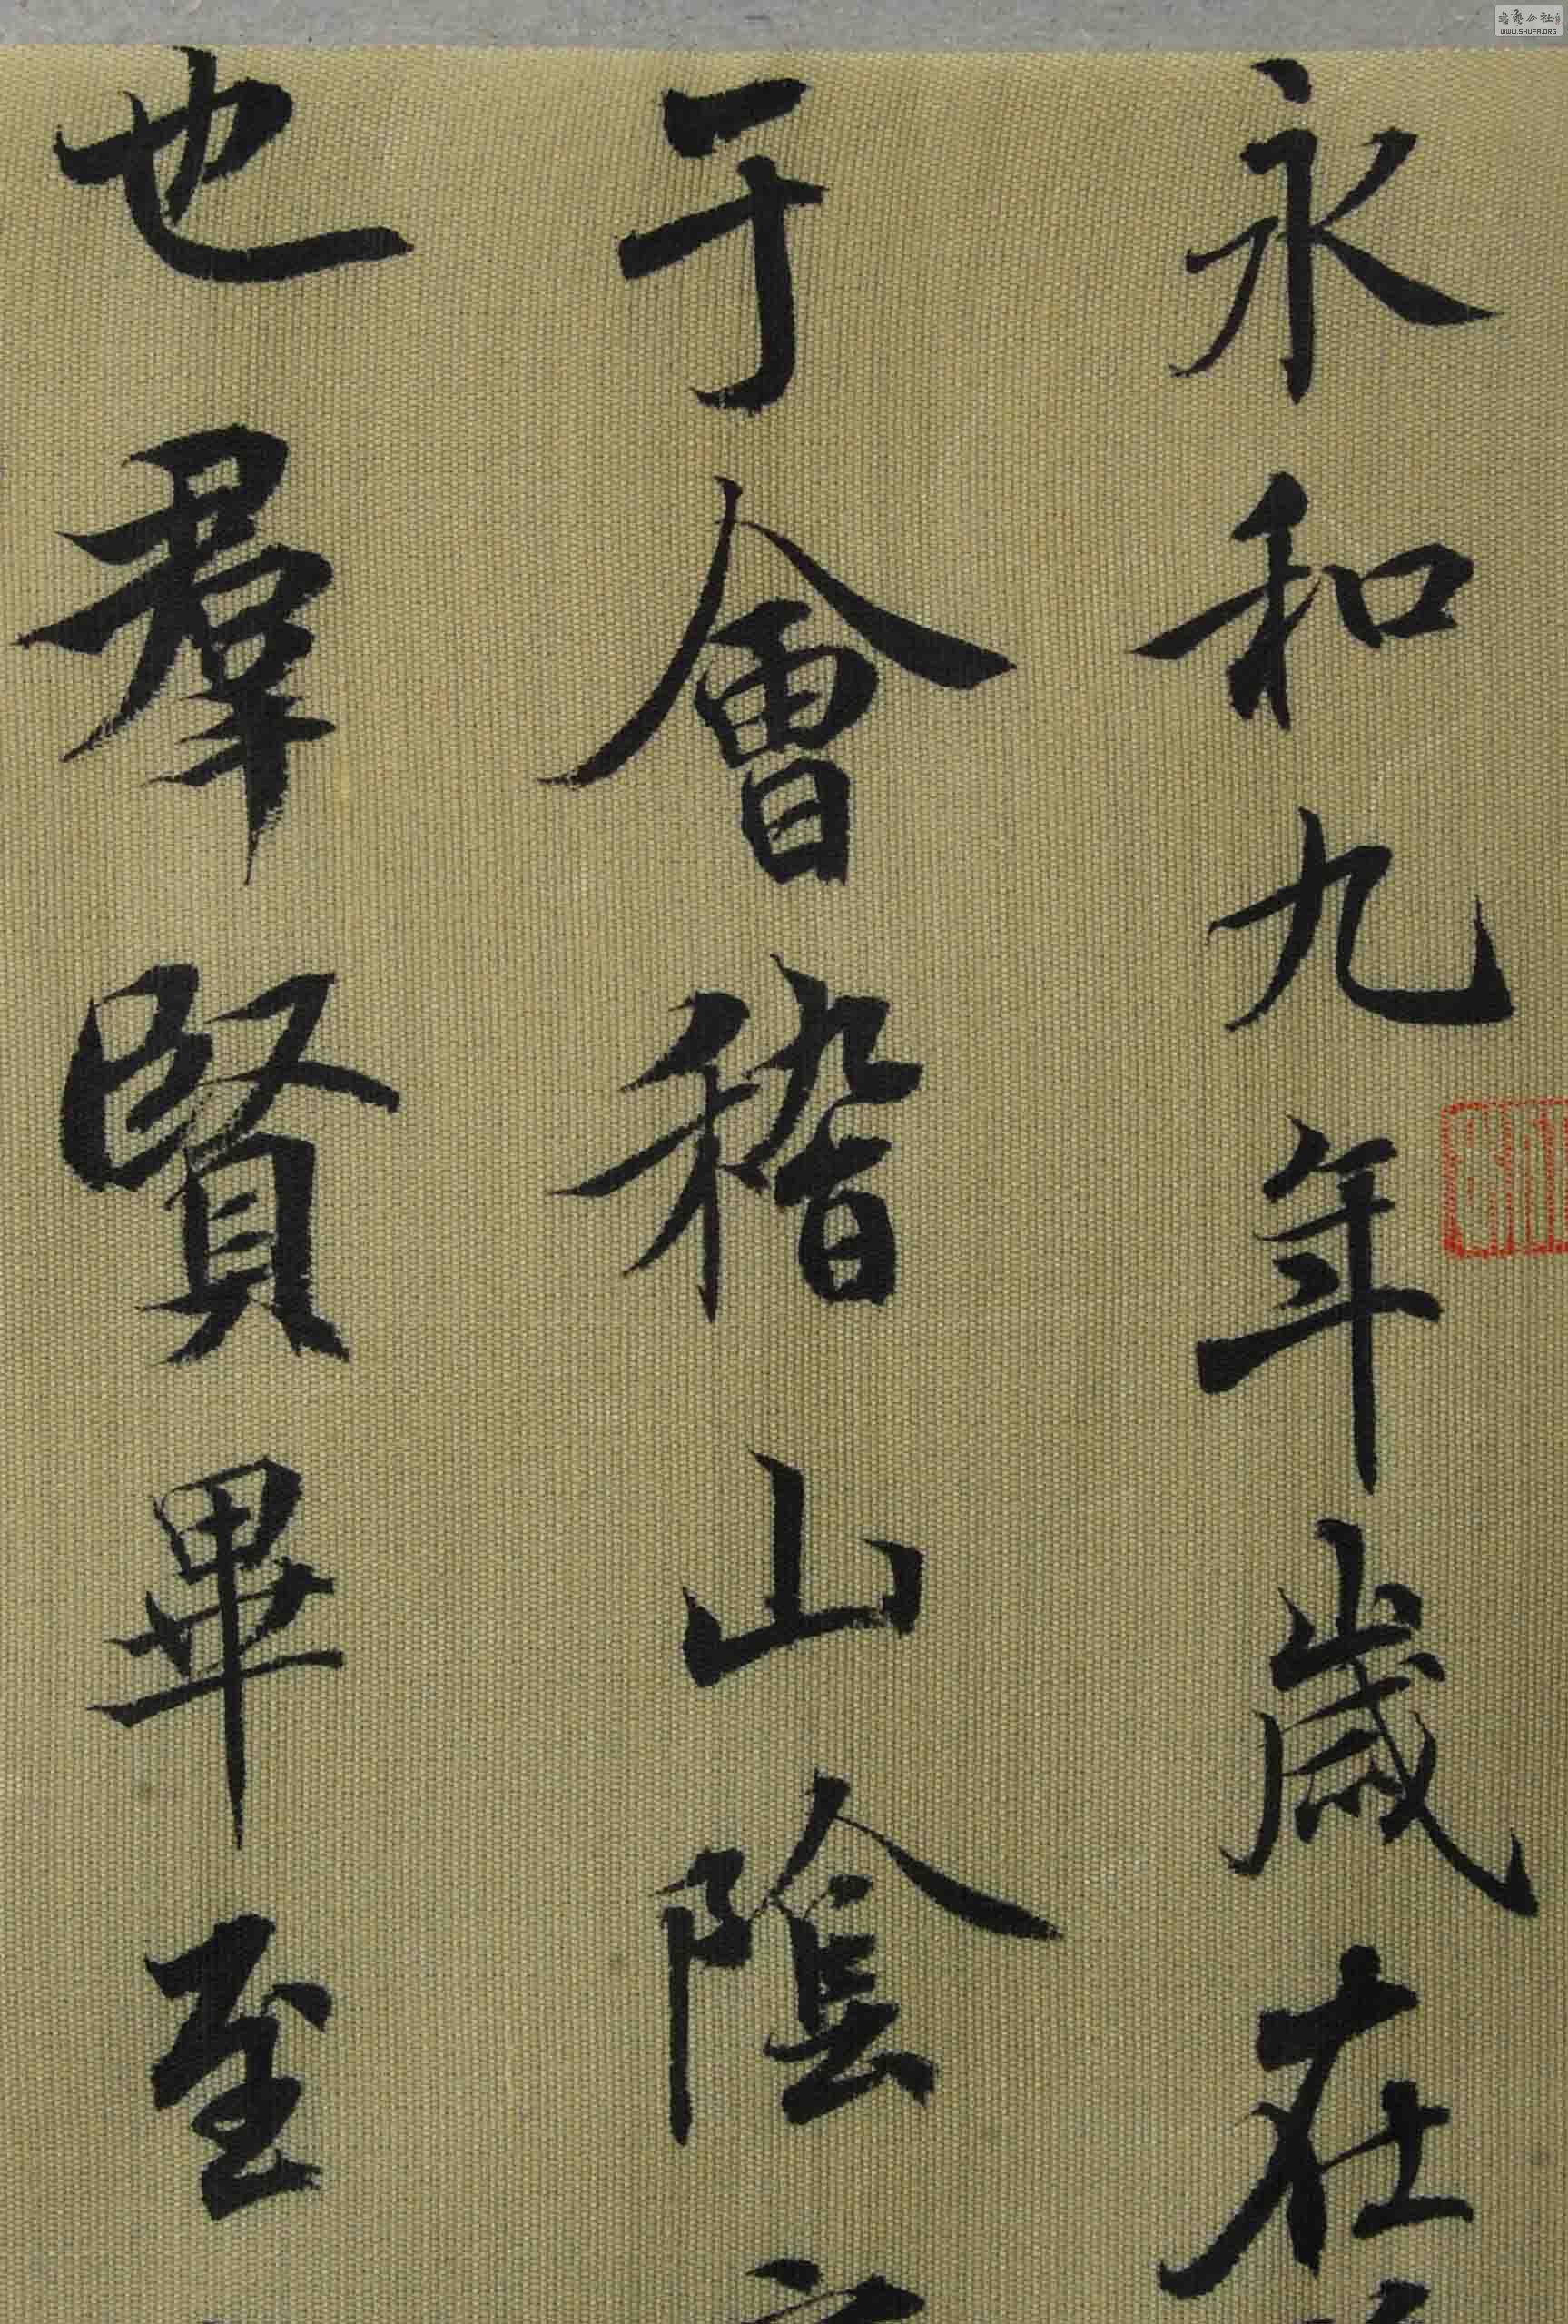 永和九年歲在
于會稽山陰
也羣賢畢至
WWW.SHUFA.ORG